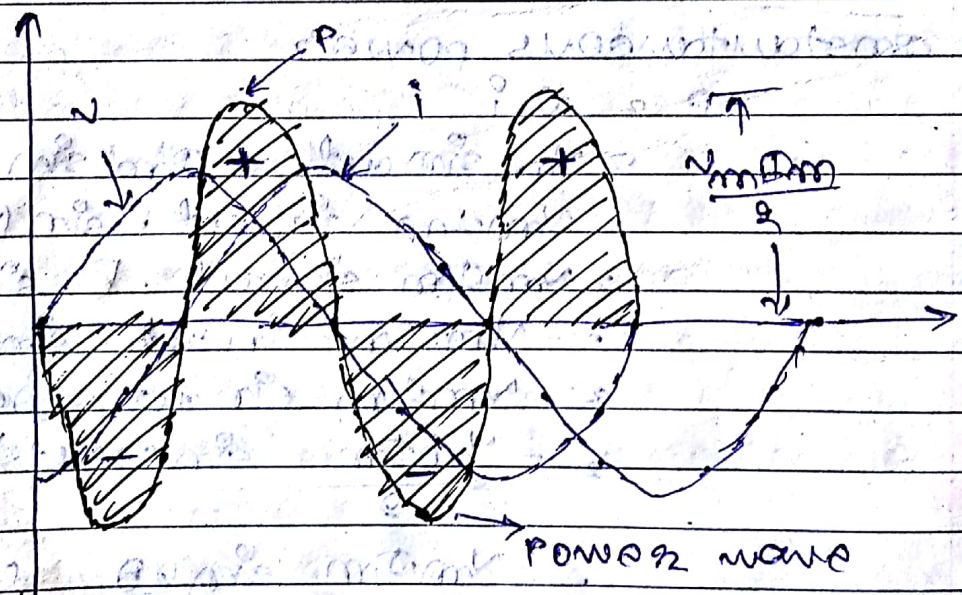 P
v
i
+
+
VmIm
2
-
-
Power wave